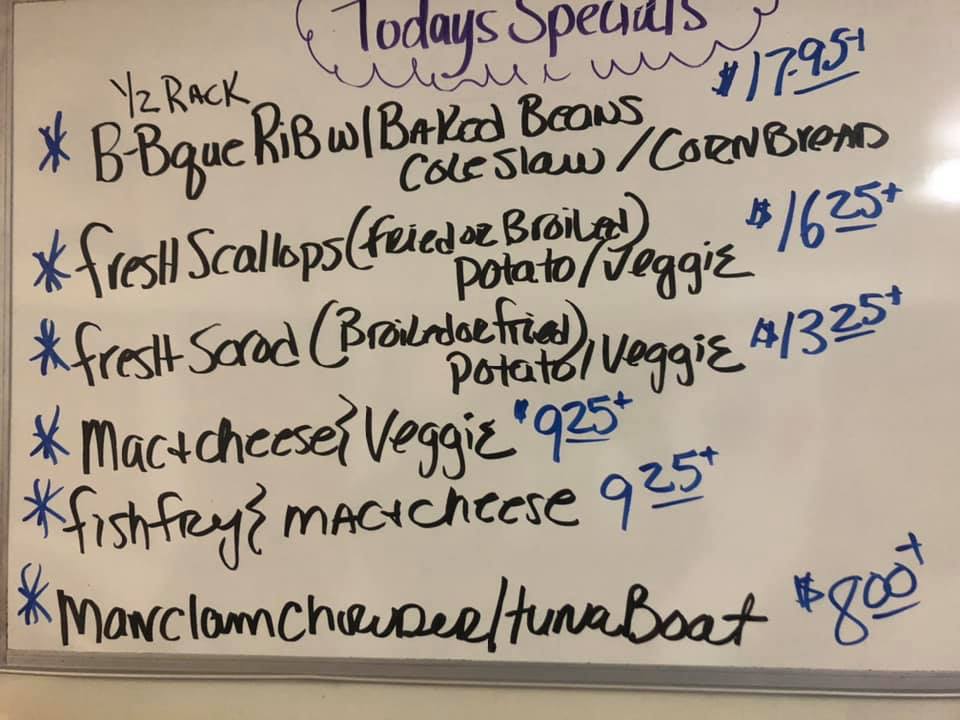 Todays Specials
1/2 RACK $17.95+
* B-Bque RiB w/ BAKED BEANS
Cole Slaw / CORN BREAD
* fresH Scallops (fried or Broiled) $16 25+
potato / Veggie
* fresH Scrod (Broiled or fried) $13 25+
potato / Veggie
* Mac + cheese } Veggie $9 25+
* fish fry } MAC + cheese 9 25+
* Man clam Chowder / tuna Boat $8 00+